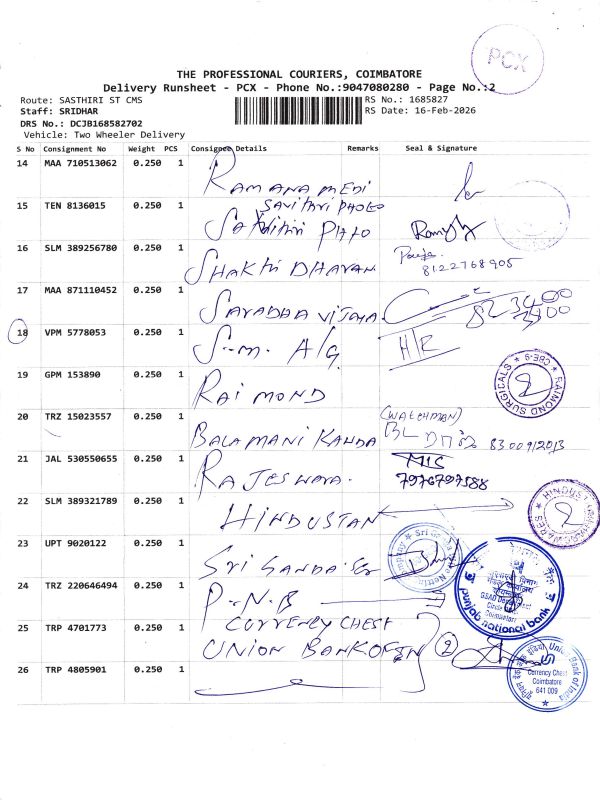 PCX
THE PROFESSIONAL COURIERS, COIMBATORE
Delivery Runsheet - PCX - Phone No.:9047080280 - Page No.:2
Route: SASTHIRI ST CMS
RS No.: 1685827
Staff: SRIDHAR
RS Date: 16-Feb-2026
DRS No.: DCJB168582702
Vehicle: Two Wheeler Delivery
S No Consignment No Weight PCS Consignee Details Remarks Seal & Signature
14 MAA 710513062 0.250 1 RAMANA MEDI
15 TEN 8136015 0.250 1 SAVITHRI PHOTO
16 SLM 389256780 0.250 1 SHAKTHI DHARAN Pooja
8122768905
17 MAA 871110452 0.250 1 SARADHA VIJAYA
18 VPM 5778053 0.250 1 S-M. A/G H/R
19 GPM 153890 0.250 1 RAIMOND RAIMOND SURGICALS CBE-9
20 TRZ 15023557 0.250 1 BALAMANI KANDA (WATCHMAN)
21 JAL 530550655 0.250 1 RAJESWARA. 7976797588
22 SLM 389321789 0.250 1 HINDUSTAN
23 UPT 9020122 0.250 1 SRI
24 TRZ 220646494 0.250 1 P-N.B punjab national bank
25 TRP 4701773 0.250 1 CURRENCY CHEST
UNION BANK OF IN 2
26 TRP 4805901 0.250 1 Union Bank of India
Currency Chest
Coimbatore
641 009